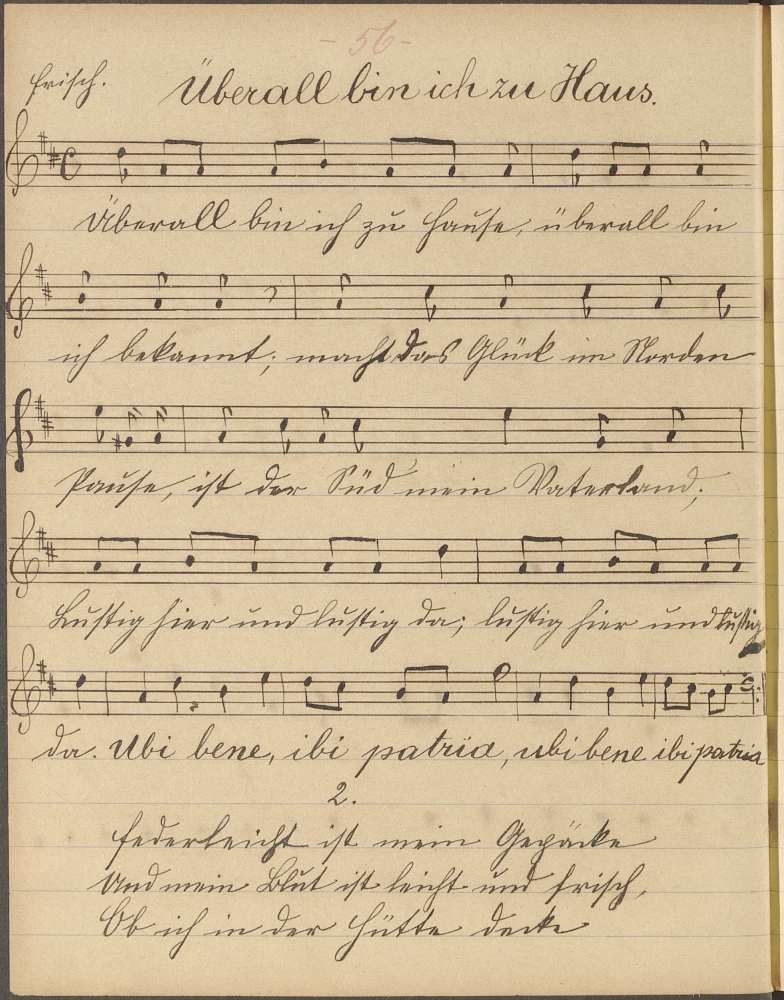 - 56 -
Frisch. Überall bin ich zu Haus.
Überall bin ich zu Hause, überall bin
ich bekannt; macht das Glück im Norden
Pause, ist der Süd mein Vaterland;
Lustig hier und lustig da; lustig hier und lustig
da. Ubi bene, ibi patria, ubi bene ibi patria
2.
Federleicht ist mein Gepäcke
Und mein Blut ist leicht und frisch,
Ob ich in der Hütte decke